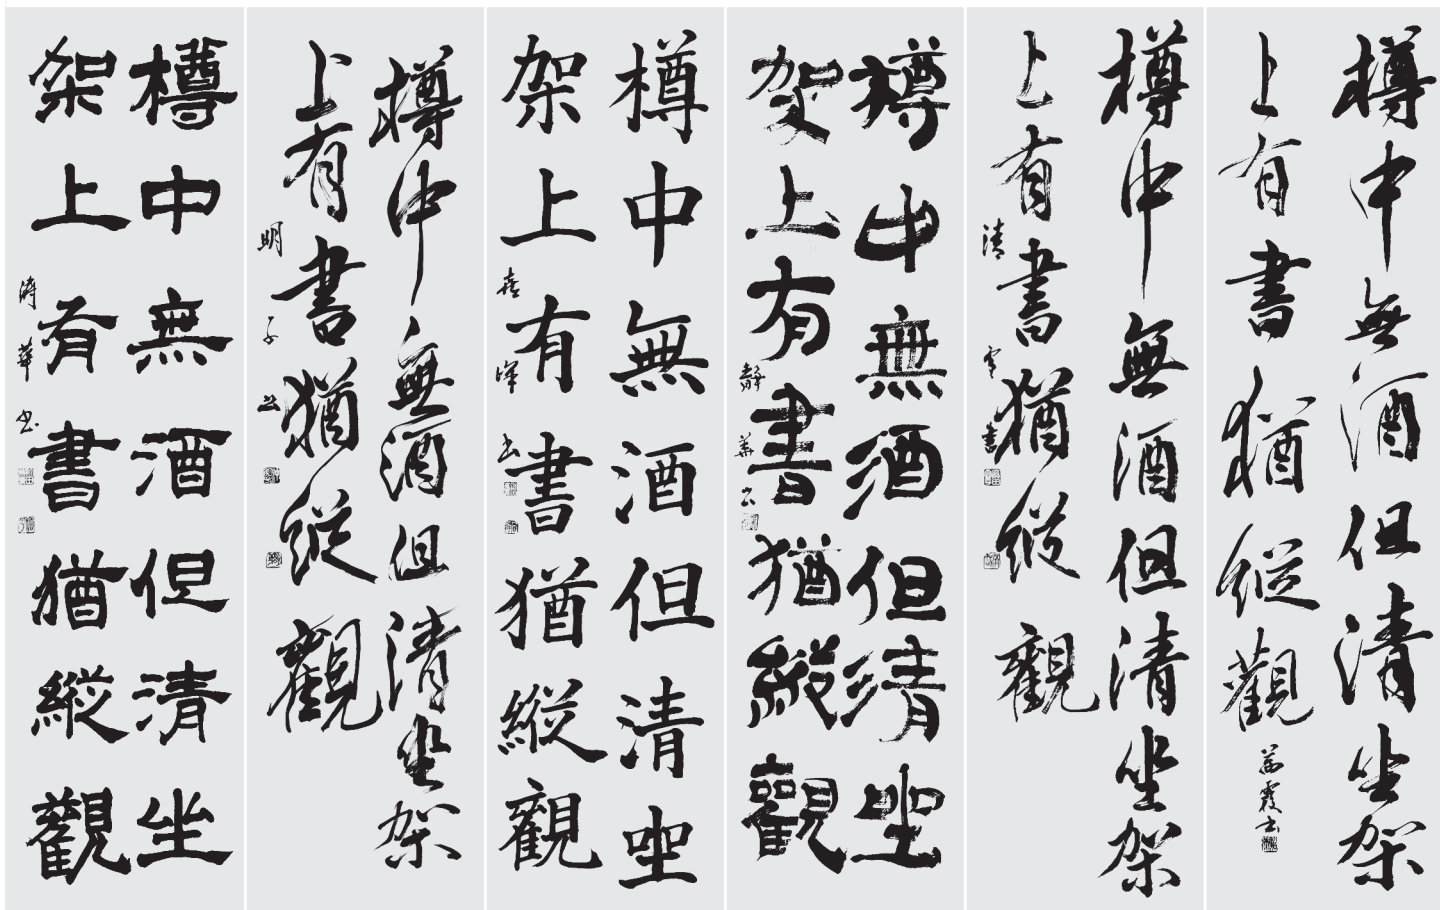 樽中無酒但清坐架
上有書猶縱觀
霞书
樽中無酒但清坐架
上有書猶縱觀
清
樽中無酒但清坐
架上有書猶縱觀
靜
樽中無酒但清坐
架上有書猶縱觀
喜
书
樽中無酒但清坐架
上有書猶縱觀
明子公
樽中無酒但清坐
架上有書猶縱觀
濤華书